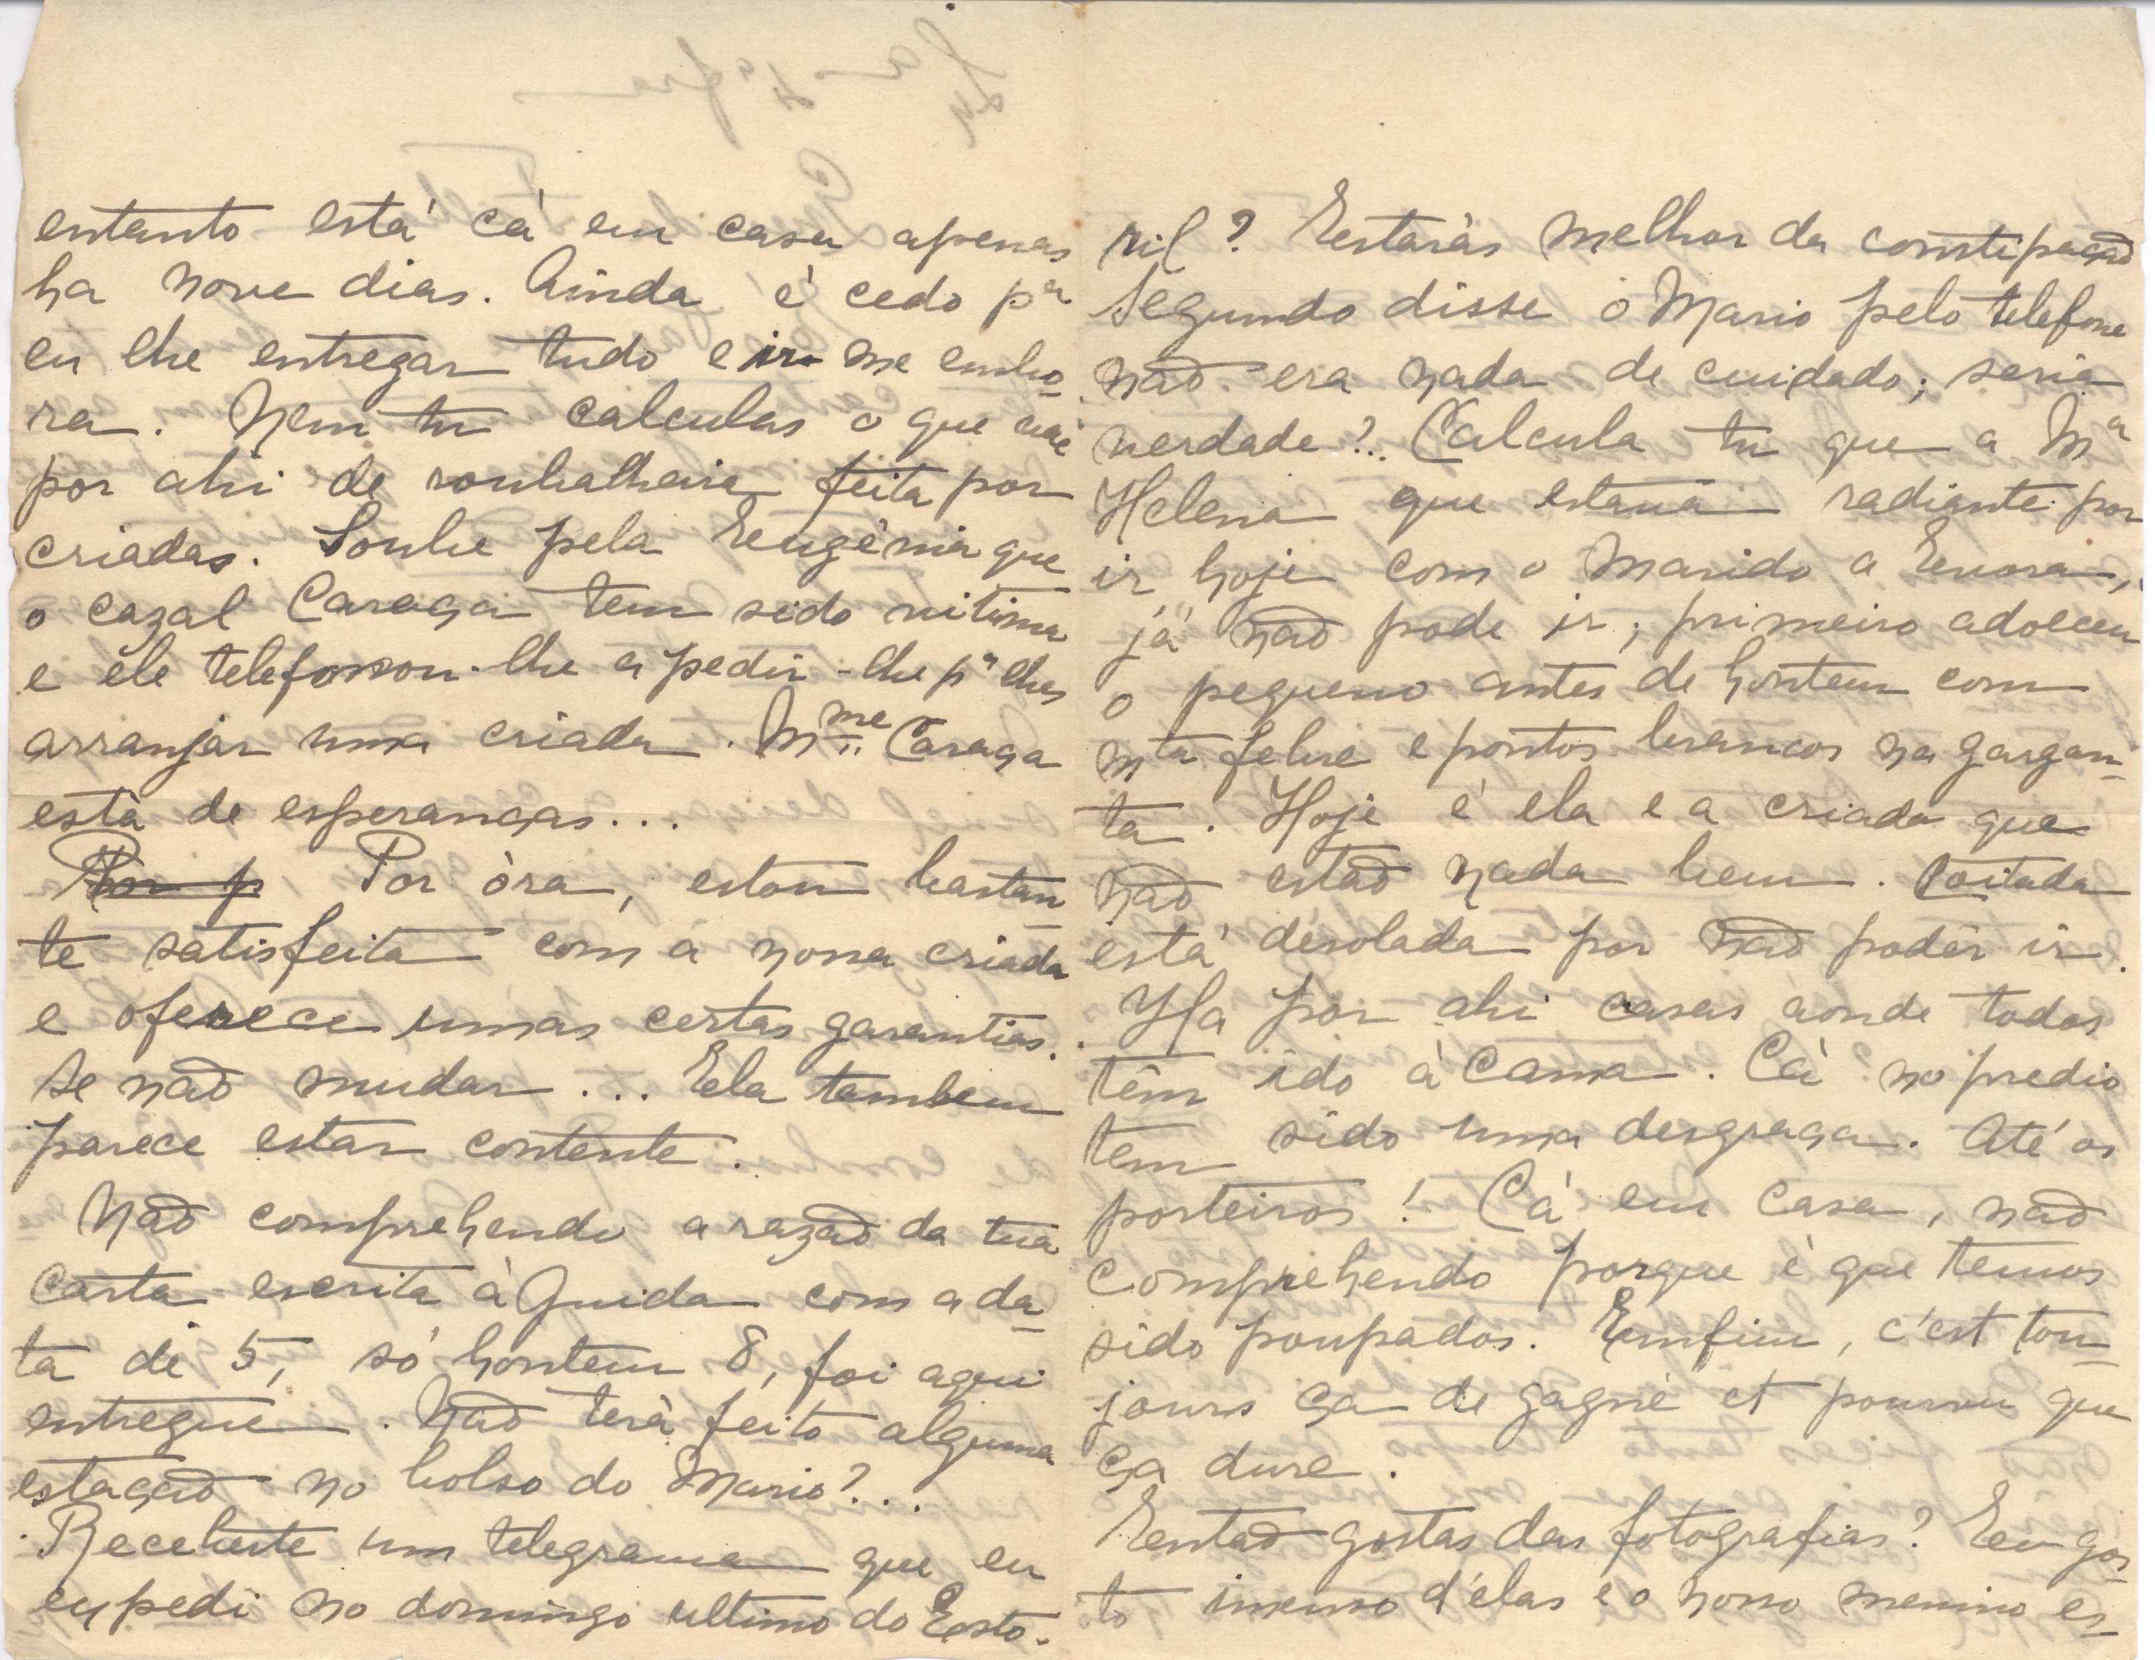 entanto está cá em casa apenas
ha nove dias. Ainda é cedo pª
eu lhe entregar tudo e ir me embo-
ra. Nem tu calculas o que vae
por ahi de roubalheira feita por
criadas. Soube pela Eugénia que
o cazal Caraça tem sido vitima
e êle telefonou-lhe a pedir-lhe pª lhes
arranjar uma criada. Mme Caraça
està de esperanças...
Por p Por òra, estou bastan-
te satisfeita com a nossa criada
e oferece umas certas garantias.
Se não mudar... Ela tambem
parece estar contente.
Não comprehendo a razão da tua
carta escrita à Guida com a da-
ta de 5, só hontem 8, foi aqui
entregue. Não terà feito alguma
estação no bolso do Mario?...
Recebeste um telegrama que eu
expedi no domingo ultimo do Esto-
ril? Estaràs melhor da constipação
Segundo disse o Mario pelo telefone
não era nada de cuidado; seria
verdade?.. Calcula tu que a Mª
Helena que estava radiante por
ir hoje com o marido a Evora,
já não pode ir; primeiro adoeceu
o pequeno antes de hontem com
mta febre e pontos brancos na gargan-
ta. Hoje é ela e a criada que
não estão nada bem. Coitada
está desolada por não poder ir.
Ha por ahi casas aonde todos
têm ido à cama. Cà no predio
tem sido uma desgraça. Até os
porteiros! Cá em casa, não
comprehendo porque è que temos
sido poupados. Emfim, c'est tou-
jours ça de gagné et pourvu que
ça dure.
Então gostas das fotografias? Eu gos-
to imenso d'elas e o nosso menino es-